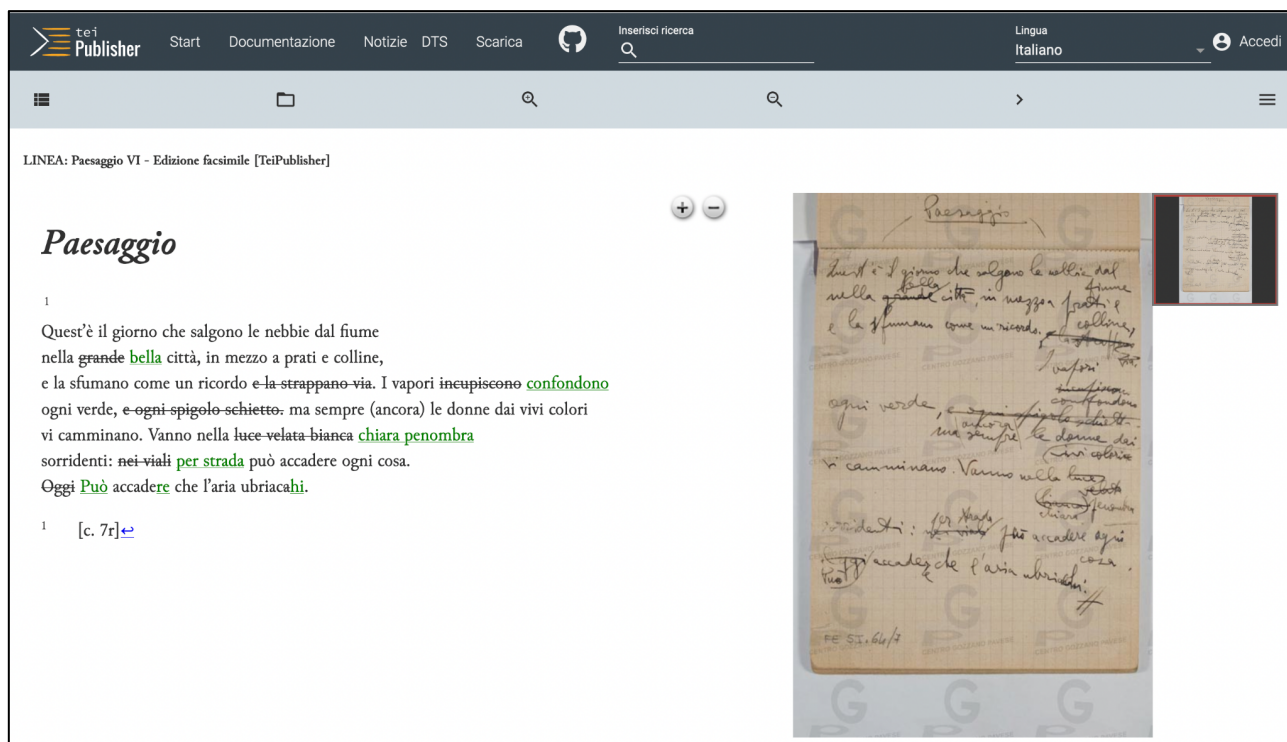 tei
Publisher
Start
Documentazione
Notizie
DTS
Scarica
Inserisci ricerca
Lingua
Italiano
Accedi
LINEA: Paesaggio VI - Edizione facsimile [TeiPublisher]
Paesaggio
1
Quest'è il giorno che salgono le nebbie dal fiume
nella grande bella città, in mezzo a prati e colline,
e la sfumano come un ricordo e la strappano via. I vapori incupiscono confondono
ogni verde, e ogni spigolo schietto. ma sempre (ancora) le donne dai vivi colori
vi camminano. Vanno nella luce velata bianca chiara penombra
sorridenti: nei viali per strada può accadere ogni cosa.
Oggi Può accadere che l'aria ubriacahi.
1 [c. 7r]↩
Paesaggio
Quest'è il giorno che salgono le nebbie dal
fiume
bella
nella grande città, in mezzo a prati e
colline,
e la sfumano come un ricordo.
I vapori
incupiscono
confondono
ogni verde, e ogni spigolo schietto.
ancora
ma sempre le donne dai
vivi colori
vi camminano. Vanno nella luce
velata
bianca penombra
chiara
per strada
sorridenti: nei viali può accadere ogni
cosa.
Oggi accade che l'aria ubriachi.
Può
FE 5I.64/7